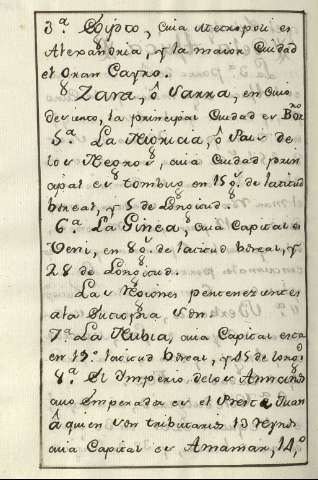 3.ª Egipto, cuia Metropoli es
Alexandria, y la maior Ciudad
el Gran Cayro.
Zara, ô Sarra, en cuio
desierto, la principal Ciudad es
5.ª La Nigricia, ô Pais de
los Negros, cuia Ciudad prin
cipal es tombus en 15 g.s de latitud
boreal, y 5 de Longitud.
6.ª La Ginea, cuia Capital es
Veni, en 8 g.s de latitud boreal, y
28 de Longitud.
Las Regiones pertenecientes
ala Ethiopia son
7.ª La Nubia, cuia Capital esta
en latitud boreal, y de
8.ª El Imperio delos
cuio Emperador es el Preste Juan
â quien son tributarios 13 Reynos
cuia Capital es Amamar, 14,º